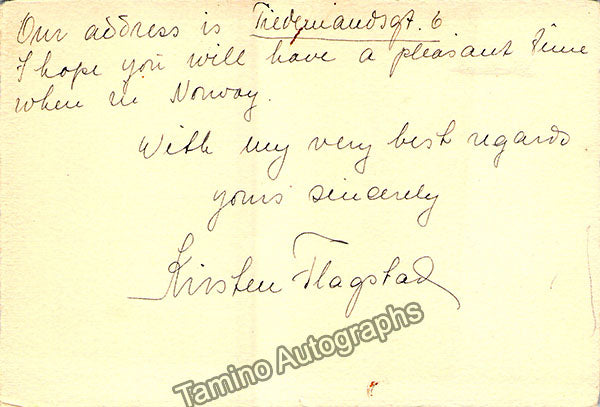 Our address is Tiedemandsgt. 6
I hope you will have a pleasant time
when in Norway.
With my very best regards
yours sincerely
Kirsten Flagstad
Tamino Autographs